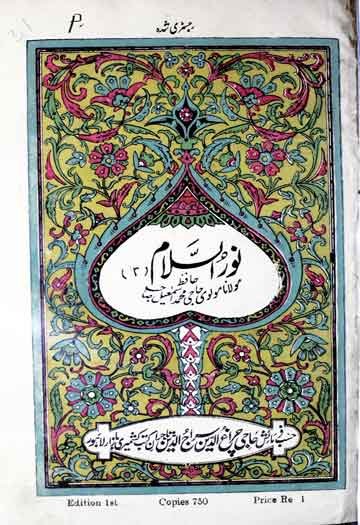 رجسٹری شدہ
نور اسلام (۲)
مولانا مولوی حاجی حافظ محمد اسمٰعیل صاحب
حسب فرمائش حاجی چراغ الدین سراج الدین تاجران کتب کشمیری بازار لاہور
Edition 1st Copies 750 Price Re 1